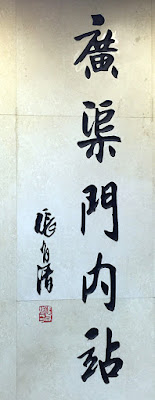 廣渠門内站